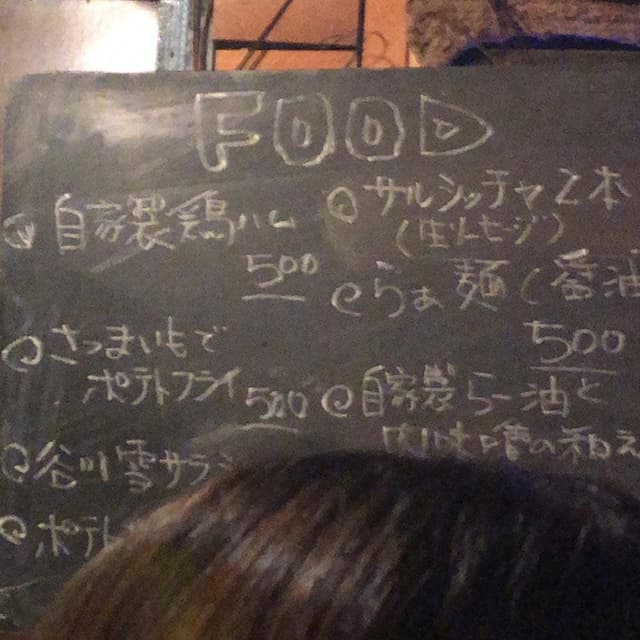 FOOD
自家製鶏ハム
500
さつまいもで
ポテトフライ
500
谷川雪サラ
ポテト
サルシッチャ2本
(生ソーセージ)
らぁ麺(醤油
500
自家製らー油と
の和え